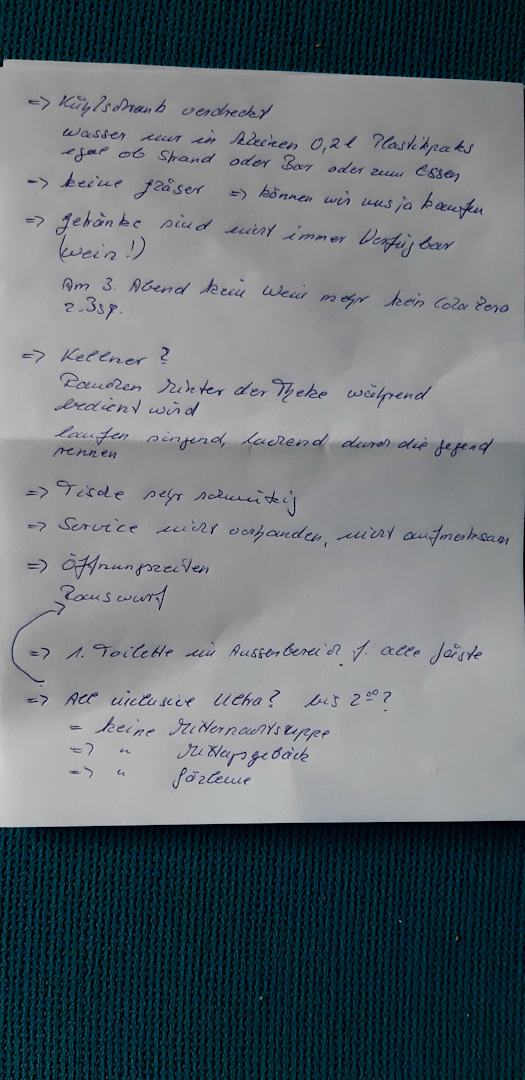 => Kühlschrank verdreckt
Wasser nur in kleinen 0,2 l Plastikpaks
egal ob Strand oder Bar oder zum Essen
=> keine Gläser => können wir uns ja kaufen
=> Getränke sind nicht immer Verfügbar
(Wein!)
Am 3. Abend kein Wein mehr kein Cola Zero
z. Bsp.
=> Kellner?
Rauchen hinter der Theke während
bedient wird
laufen singend, lachend durch die Gegend
rennen
=> Tische sehr schmutzig
=> Service nicht vorhanden, nicht aufmerksam
=> Öffnungszeiten
Rauswurf
=> 1. Toilette im Aussenbereich f. alle Gäste
=> All inclusive Ultra? bis 2⁰⁰?
= keine Mitternachtsuppe
=> " Mittagsgebäck
=> " Gözleme